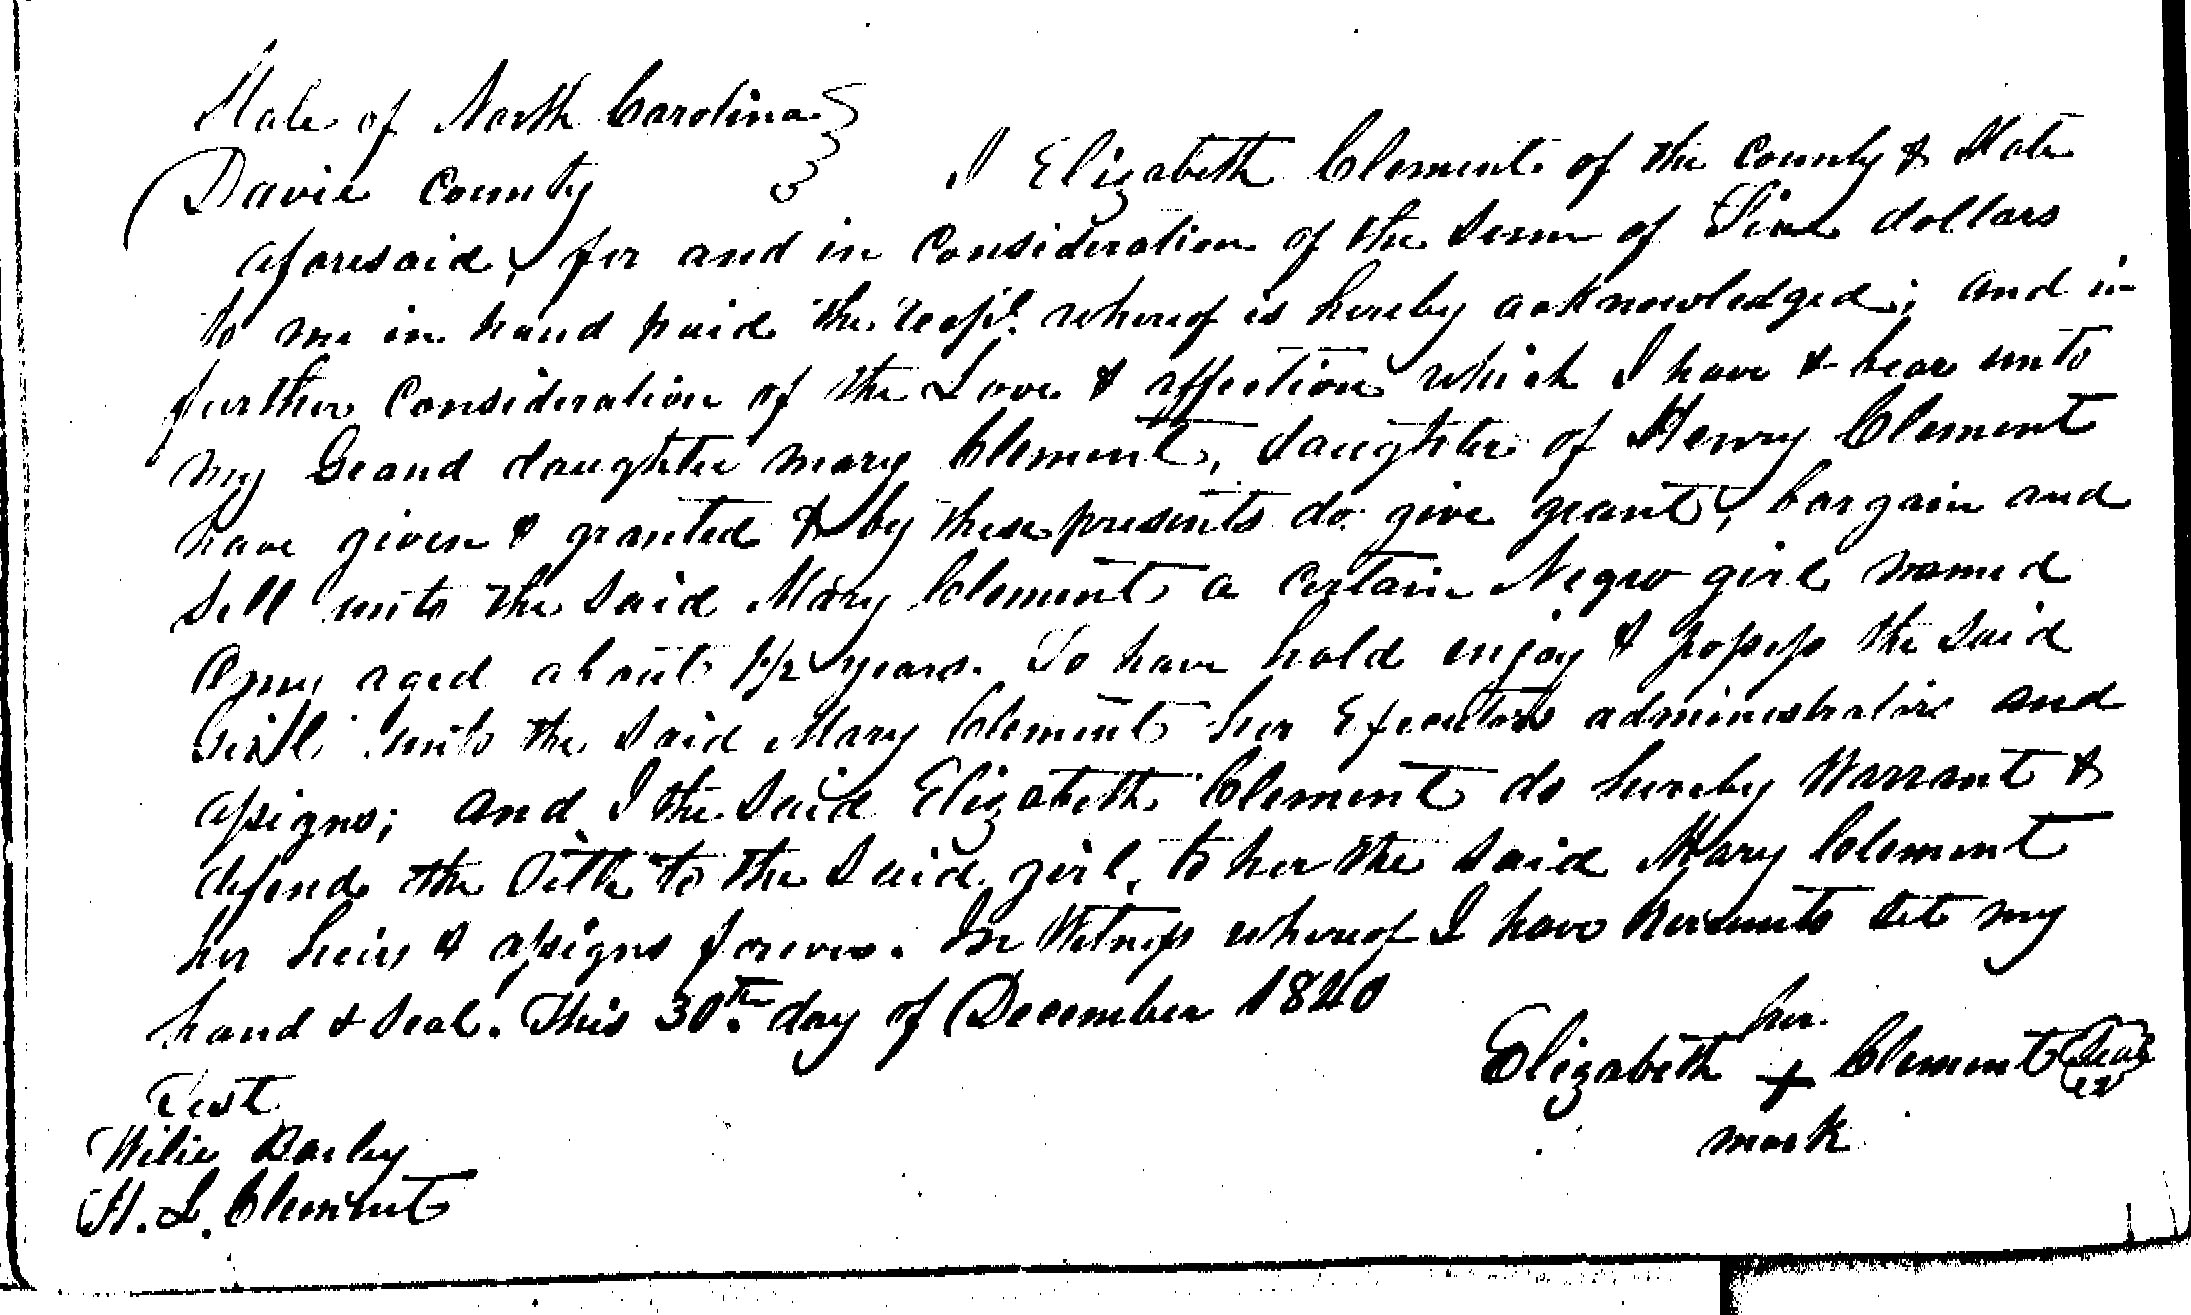 State of North Carolina
Davie County I Elizabeth Clement of the County & State
aforesaid, for and in Consideration of the Sum of Five dollars
to me in hand paid the recpt. whereof is hereby acknowledged; and in
further Consideration of the Love & affection which I have & bear unto
my Grand daughter mary Clement, daughter of Henry Clement
have given & granted & by these presents do give grant, bargain and
Sell unto the Said Mary Clement a Certain Negro girl named
Amy aged about years. To have hold enjoy & possess the Said
Girl unto the Said Mary Clement her Executors administrators and
assigns; and I the Said Elizabeth Clement do hereby Warrant &
defend the Title to the Said girl, to her the Said Mary Clement
her heirs & assigns forever. In Witness whereof I have hereunto Set my
hand & Seal. This 30th day of December 1840
her
Elizabeth + Clement Seal
mark
Test
Wilie Barley
H. L. Clement